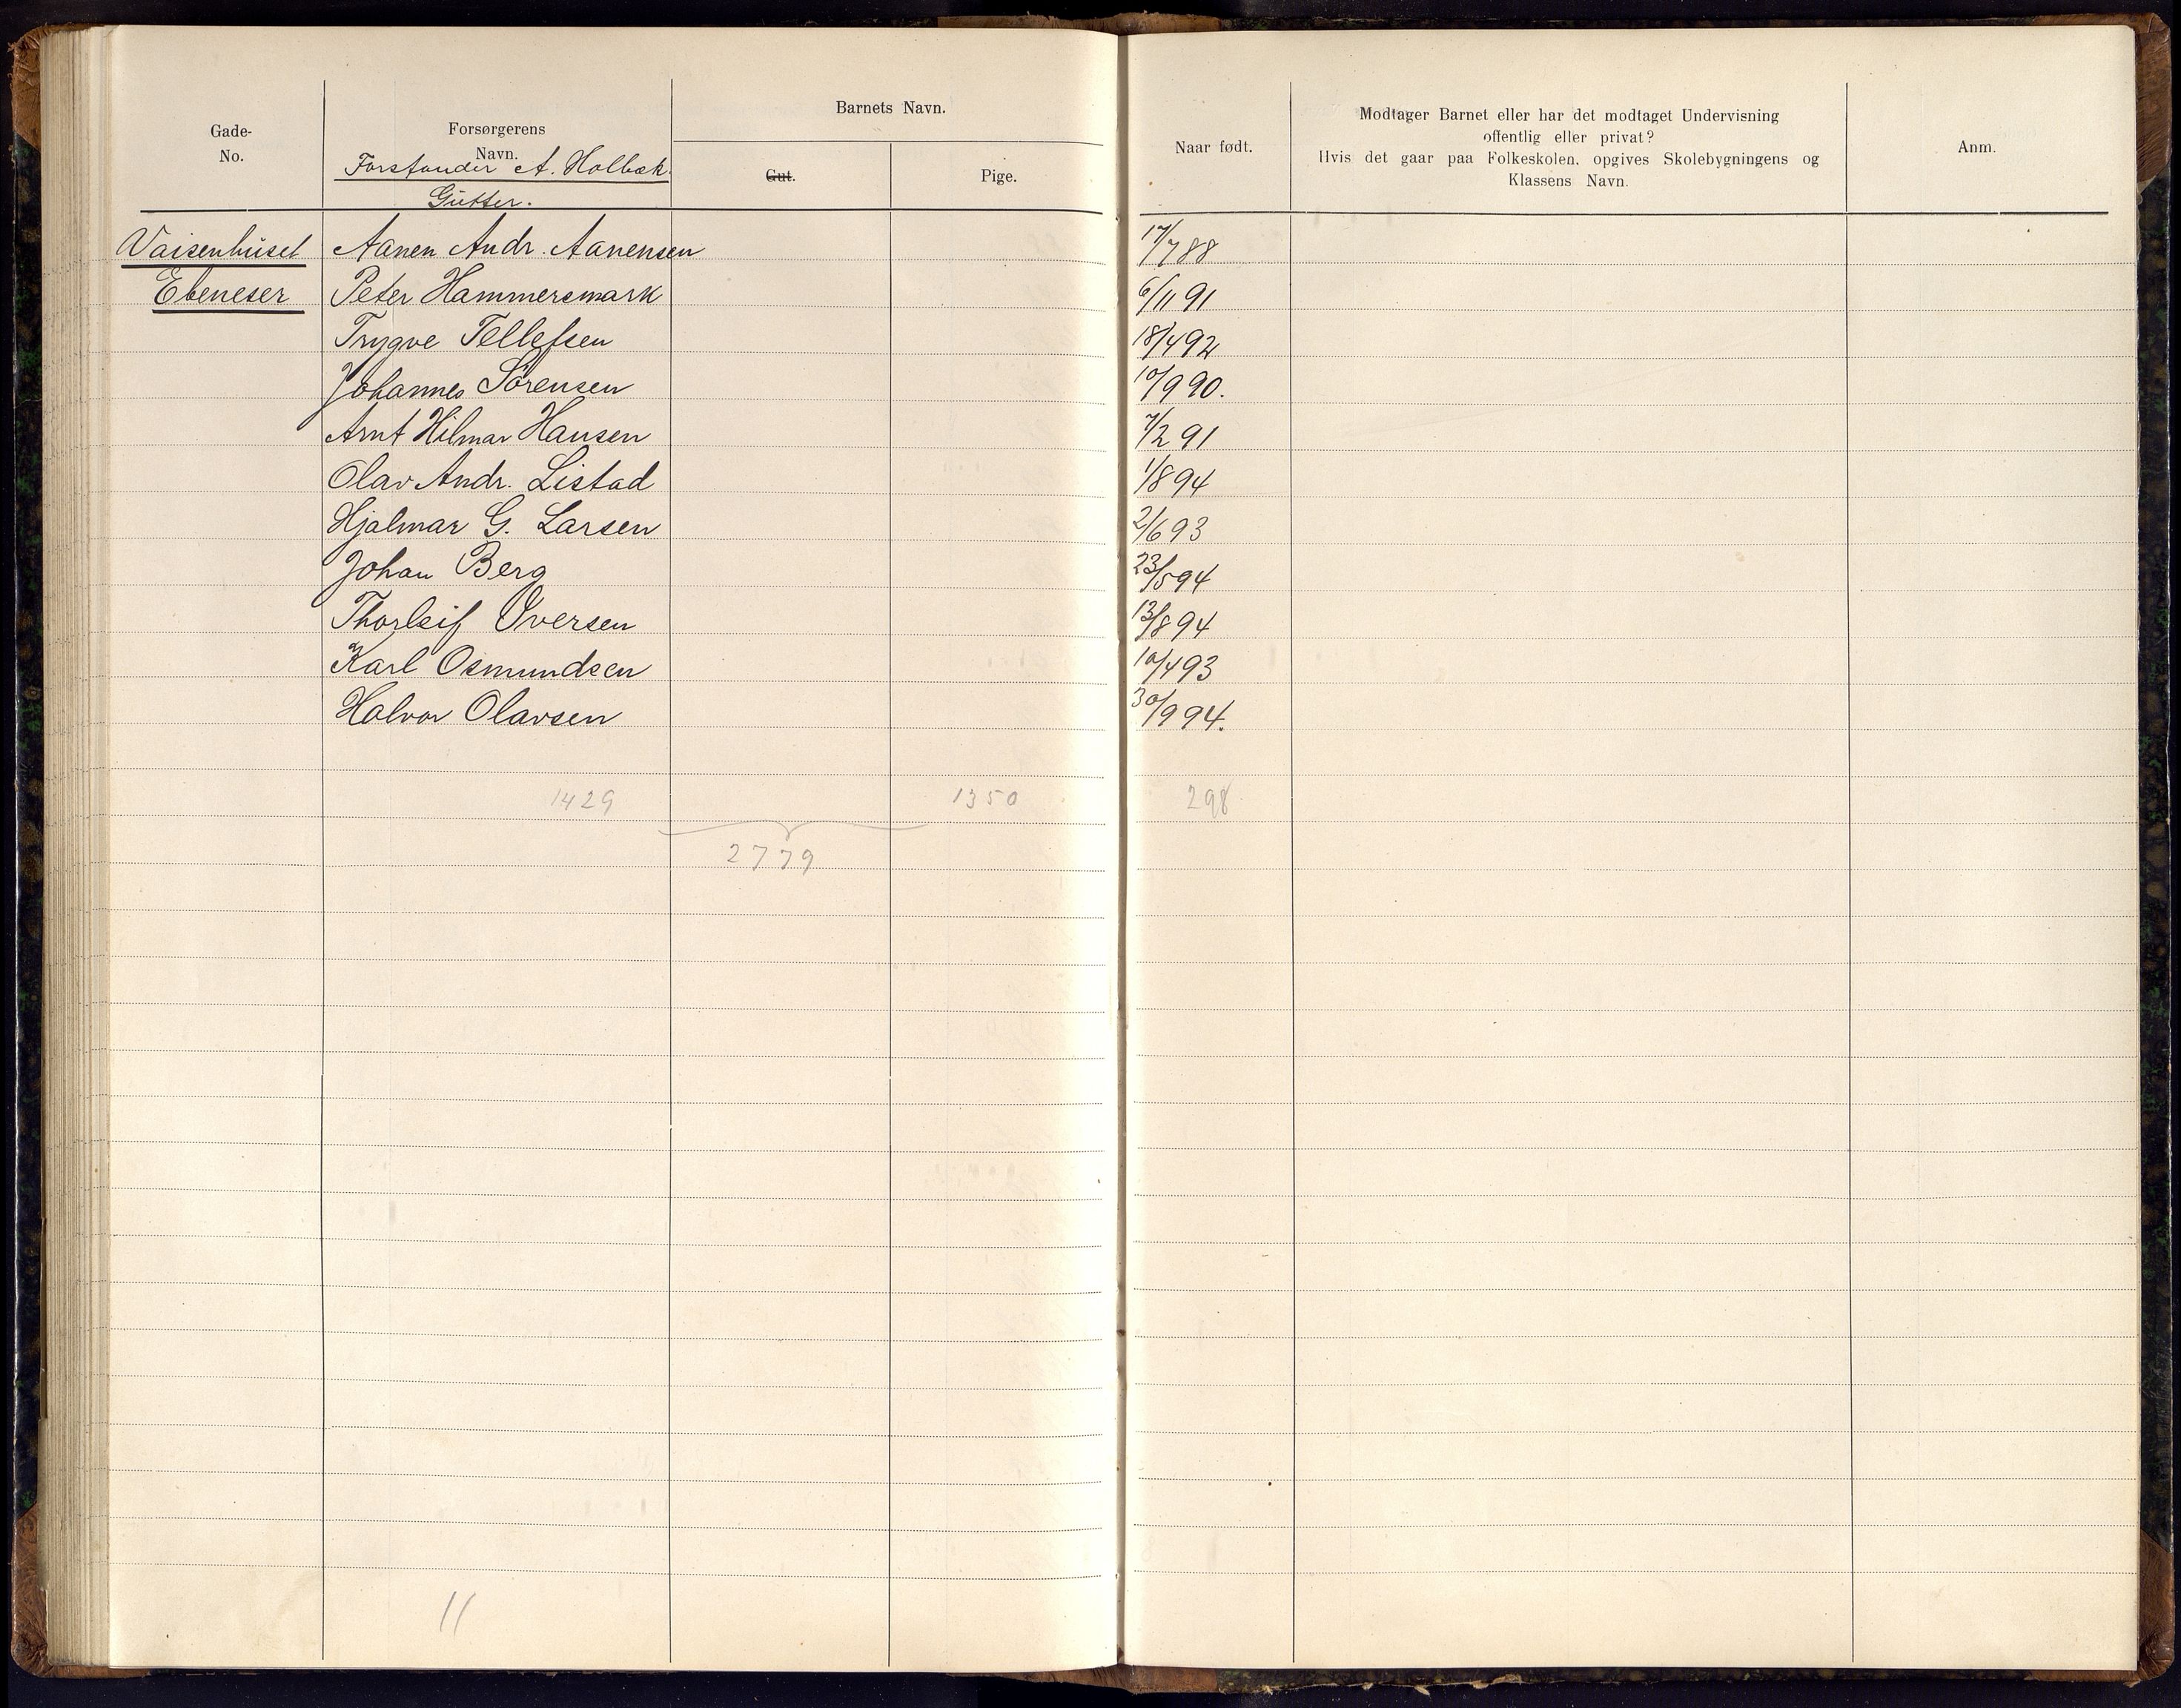 Gade-
No.
Forsørgerens
Navn.
Forstander A. Holbæk.
Gutter.
Barnets Navn.
Gut.
Pige.
Naar født.
Modtager Barnet eller har det modtaget Undervisning
offentlig eller privat?
Hvis det gaar paa Folkeskolen, opgives Skolebygningens og
Klassens Navn.
Anm.
Vaisenhuset Aanen Andr. Aanensen 17/7 88
Ebeneser Peter Hammersmark 6/11 91
Trygve Tellefsen 18/4 92
Johannes Sørensen 10/9 90.
Arnt Hilmar Hansen 7/2 91
Olav Andr. Listad 1/8 94
Hjalmar G. Larsen 2/6 93
Johan Berg 23/5 94
Thorleif Iversen 13/8 94
Karl Osmundsen 10/4 93
Halvor Olavsen 30/9 94.
1429 1350 298
2779
11